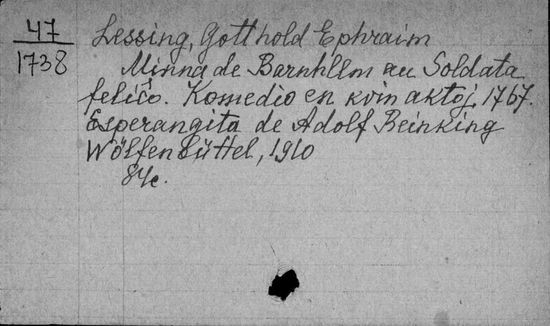 47
1738
Lessing, Gotthold Ephraim
Minna de Barnhelm au Soldata
feliĉo. Komedio en kvin aktoj, 1767.
Esperangita de Adolf Reinking
Wölfenbüttel, 1910
84c.